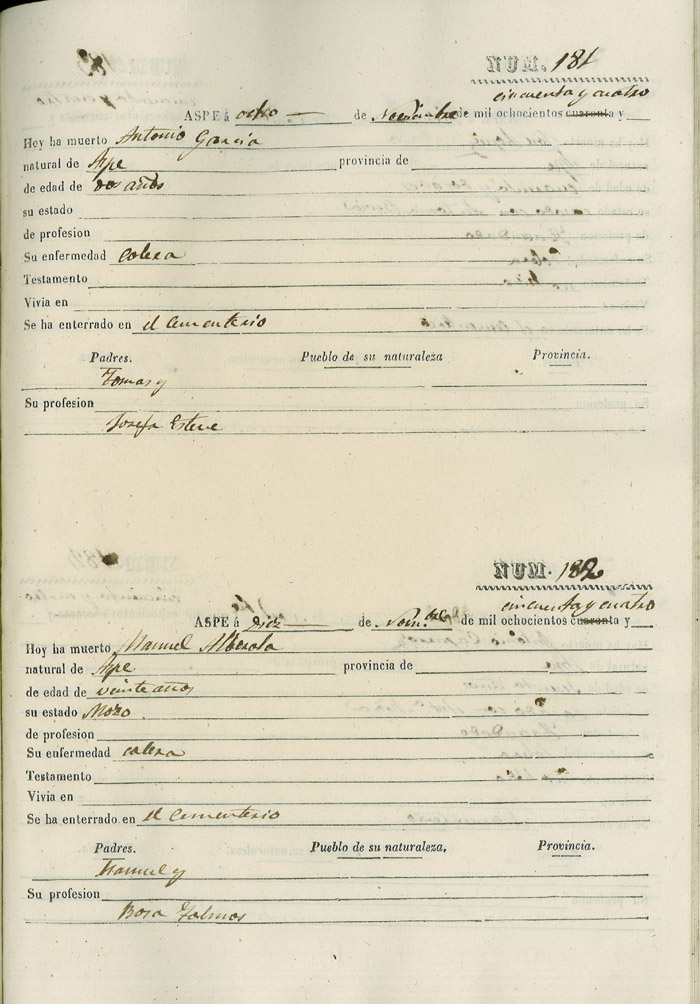 NUM. 181
cincuenta y cuatro
ASPE á ocho de Noviembre de mil ochocientos cuarenta y
Hoy ha muerto Antonio Garcia
natural de Aspe provincia de
de edad de dos años
su estado
de profesion
Su enfermedad colera
Testamento
Vivia en
Se ha enterrado en el cementerio
Padres. Pueblo de su naturaleza Provincia.
Tomas y
Su profesion
Josefa Esteve
NUM. 182
cincuenta y cuatro
ASPE á Diez de Novbre de mil ochocientos cuarenta y
Hoy ha muerto Manuel Alberola
natural de Aspe provincia de
de edad de veinte años
su estado Mozo
de profesion
Su enfermedad colera
Testamento
Vivia en
Se ha enterrado en el cementerio
Padres. Pueblo de su naturaleza. Provincia.
Manuel y
Su profesion
Rosa